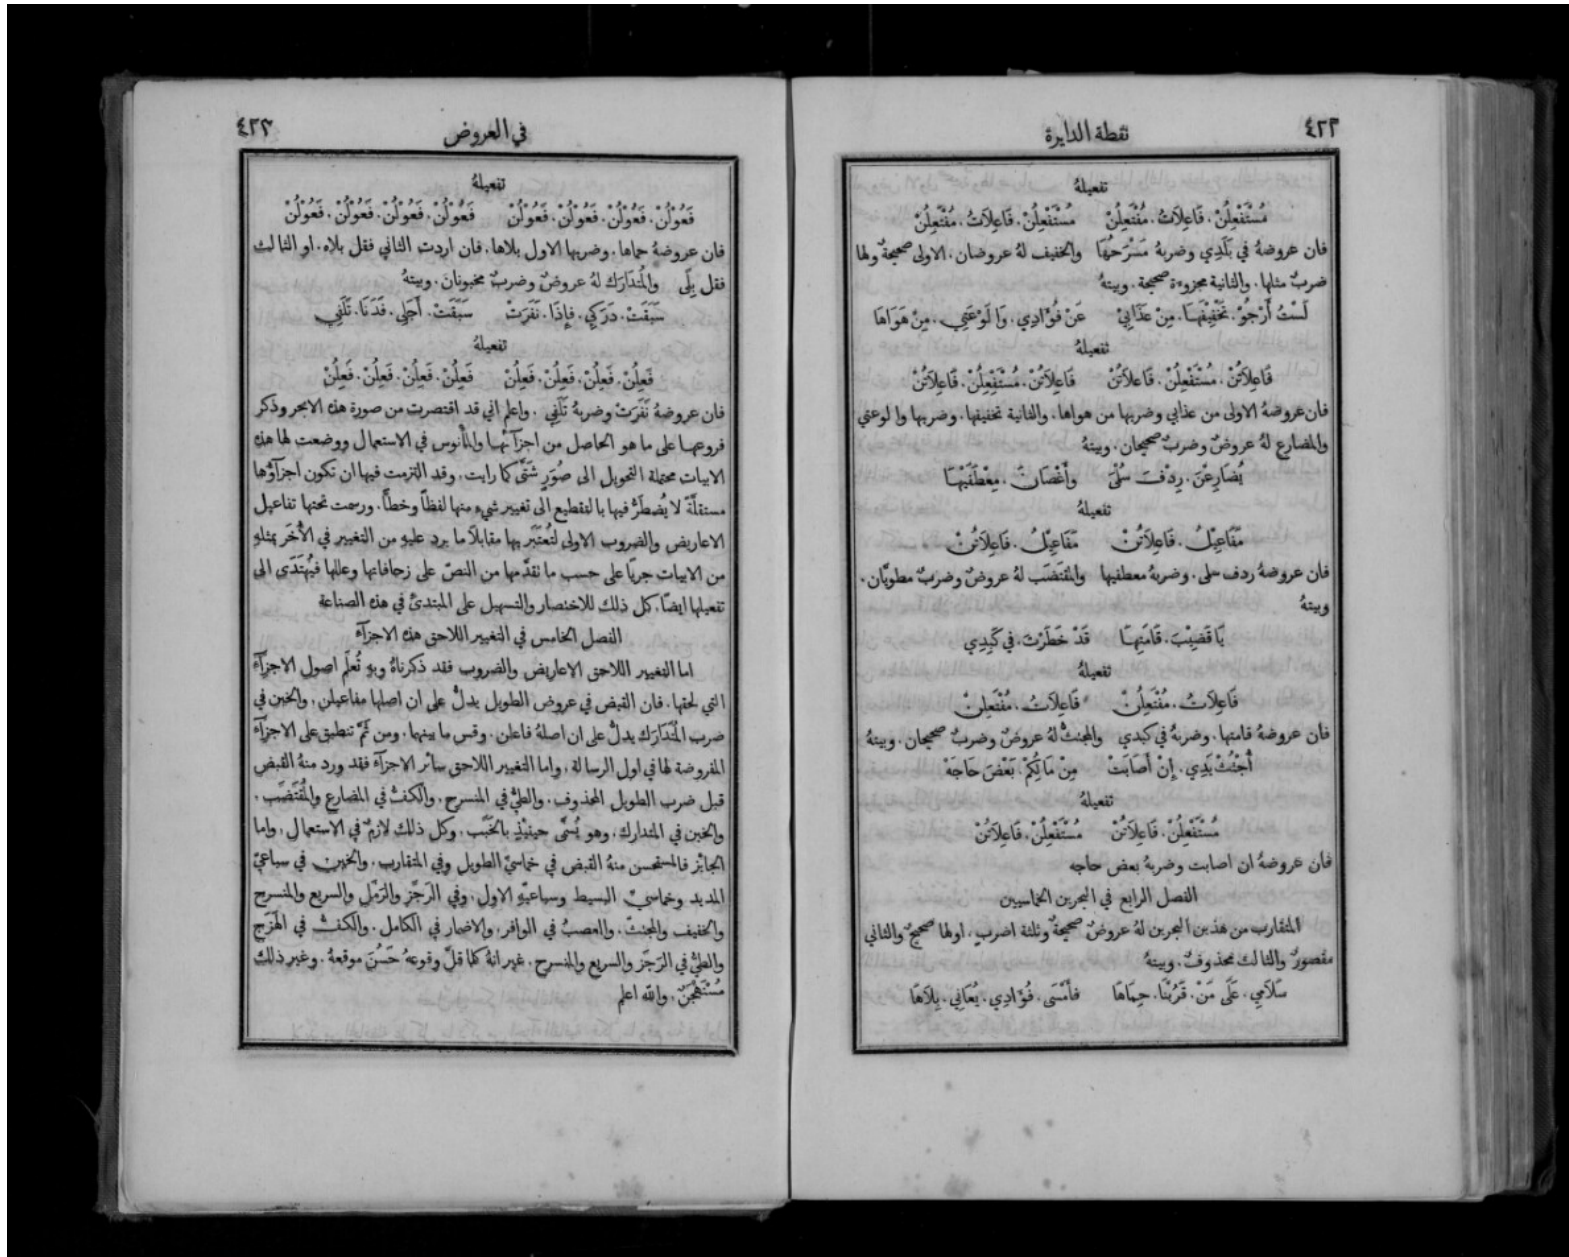 ٤٢٢
نقطة الدايرة
تفعيلهُ
مُسْتَفْعِلُنْ. فَاعِلَاتُ. مُفْتَعِلُنْ مُسْتَفْعِلُنْ. فَاعِلَاتُ. مُفْتَعِلُنْ
فان عروضهُ في بَلَدِي وضربهُ مَسْرَحُهَا والخفيف لهُ عروضان. الاولى صحيحةٌ ولها
ضربٌ مثلها. والثانية مجزوءة صحيحة. وبيتهُ
لَسْتُ أَرْجُوْ. تَخْفِيفَهَا. مِنْ عَذَابِيْ عَنْ فُؤَادِي. وَا لَوْعَتِي. مِنْ هَوَاهَا
تفعيلهُ
فَاعِلَاتُنْ. مُسْتَفْعِلُنْ. فَاعِلَاتُنْ فَاعِلَاتُنْ. مُسْتَفْعِلُنْ. فَاعِلَاتُنْ
فان عروضهُ الاولى من عذابي وضربها من هواها. والثانية تخفيفها. وضربها وا لوعتي
والمضارع لهُ عروضٌ وضربٌ صحيحان. وبيتهُ
يُضَارِعْنَ. رِدْفَ سَلْمَى وأَغْصَانَ. مِعْطَفَيْهَا
تفعيلهُ
مَفَاعِيلُ. فَاعِلَاتُنْ مَفَاعِيلُ. فَاعِلَاتُنْ
فان عروضهُ ردف سلمى. وضربهُ معطفيها والمُقتَضَب لهُ عروضٌ وضربٌ مطويَّان.
وبيتهُ
يَا قَضِيْبَ. قَامَتِهَا قَدْ خَطَرْتَ. في كَبِدِي
تفعيلهُ
فَاعِلَاتُ. مُفْتَعِلُنْ فَاعِلَاتُ. مُفْتَعِلُنْ
فان عروضهُ قامتها. وضربهُ في كبدي والمجتثّ لهُ عروضٌ وضربٌ صحيحان. وبيتهُ
أُجْتُثَّ يَدِي. إِنْ أَصَابَتْ مِنْ مَالِكُمْ. بَعْضَ حَاجَهْ
تفعيلهُ
مُسْتَفْعِلُنْ. فَاعِلَاتُنْ مُسْتَفْعِلُنْ. فَاعِلَاتُنْ
فان عروضهُ ان اصابت وضربهُ بعض حاجه
الفصل الرابع في البحرين الخماسيين
المتقارب من هذين البحرين لهُ عروضٌ صحيحةٌ وثلثة اضرب. اولها صحيحٌ والثاني
مقصورٌ والثالث محذوفٌ. وبيتهُ
سَلَامِي. عَلَى مَنْ. قَرُبْنَا. حِمَاهَا فأَمْسَى. فُؤَادِي. يُعَانِي. بِلَاهَا
في العروض
٤٢٣
تفعيلهُ
فَعُوْلُنْ. فَعُوْلُنْ. فَعُوْلُنْ. فَعُوْلُنْ فَعُوْلُنْ. فَعُوْلُنْ. فَعُوْلُنْ. فَعُوْلُنْ
فان عروضهُ حماها. وضربها الاول بلاها. فان اردت الثاني فقل بلاه. او الثالث
فقل بِلًى والمُتدَارَك لهُ عروضٌ وضربٌ مخبونان. وبيتهُ
سَبَقَتْ. دَرَكِي. فإِذَا. نَفَرَتْ سَبَقَتْ. أَجَلِي. فَدَنَا. تَلَفِي
تفعيلهُ
فَعِلُنْ. فَعِلُنْ. فَعِلُنْ. فَعِلُنْ فَعِلُنْ. فَعِلُنْ. فَعِلُنْ. فَعِلُنْ
فان عروضهُ نَفَرَتْ وضربهُ تَلَفِي. واعلم اني قد اقتصرت من صورة هذه الابحر وذكر
فروعها على ما هو الحاصل من اجزآئها والمأنوس في الاستعمال ووضعت لها هذه
الابيات محتملة التحويل الى صُوَرٍ شَتَّى كما رايت. وقد التزمت فيها ان تكون اجزآؤها
مستقلَّةً لا يُضطَرُّ فيها بالتقطيع الى تغيير شيء منها لفظًا وخطًّا. ورسمت تحتها تفاعيل
الاعاريض والضروب الاولى لتُعتَبَر بها مقابلًا ما يرد عليهِ من التغيير في الأُخَر بمثلهِ
من الابيات جريًا على حسب ما تقدَّمها من النصّ على زحافاتها وعللها فيُهتَدَى الى
تفعيلها ايضًا. كل ذلك للاختصار والتسهيل على المبتدئ في هذه الصناعة
الفصل الخامس في التغيير اللاحق هذه الاجزآء
اما التغيير اللاحق الاعاريض والضروب فقد ذكرناهُ وبهِ تُعلَم اصول الاجزآء
التي لحقها. فان القبض في عروض الطويل يدلُّ على ان اصلها مفاعيلن. والخبن في
ضرب المُتَدَارَك يدلُّ على ان اصلهُ فاعلن. وقس ما بينهما. ومن ثَمَّ تنطبق على الاجزآء
المفروضة لها في اول الرسالة. واما التغيير اللاحق سائر الاجزآء فقد ورد منهُ القبض
قبل ضرب الطويل المحذوف. والطيُّ في المنسرح. والكفُّ في المضارع والمُقْتَضَب.
والخبن في المتدارك. وهو يُسَمَّى حينئِذٍ بالخَبَب. وكل ذلك لازمٌ في الاستعمال. واما
الجايز فالمستحسن منهُ القبض في خماسيّ الطويل وفي المتقارب. والخبن في سباعيّ
المديد وخماسيّ البسيط وسباعيّهِ الاول. وفي الرَجَز والرَمَل والسريع والمنسرح
والخفيف والمجتثّ. والعصبُ في الوافر. والاضمار في الكامل. والكفُّ في الهَزَج
والطيُّ في الرَجَز والسريع والمنسرح. غير انهُ كلما قلَّ وقوعهُ حَسُنَ موقعهُ. وغير ذلك
مُسْتَهْجَنٌ. والله اعلم